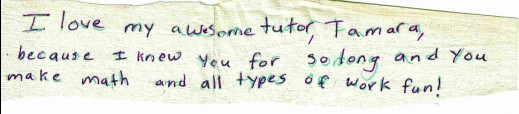 I love my awesome tutor, Tamara,
because I knew you for so long and you
make math and all types of work fun!